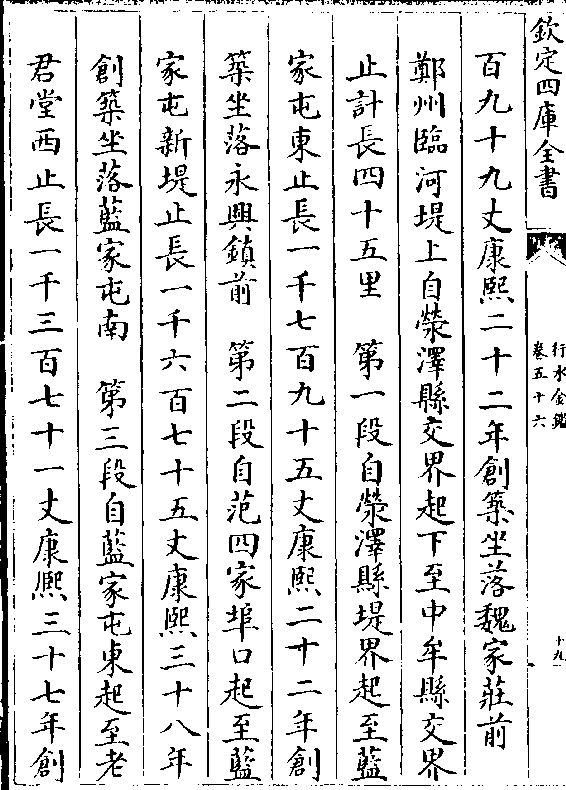 欽定四庫全書
行水金鑑
卷五十六
十九
百九十九丈康熙二十二年創築坐落魏家莊前
鄭州臨河堤上自滎澤縣交界起下至中牟縣交界
止計長四十五里　第一段自滎澤縣堤界起至藍
家屯東止長一千七百九十五丈康熙二十二年創
築坐落永興鎮前　第二段自范四家埠口起至藍
家屯新堤止長一千六百七十五丈康熙三十八年
創築坐落藍家屯南　第三段自藍家屯東起至老
君堂西止長一千三百七十一丈康熙三十七年創